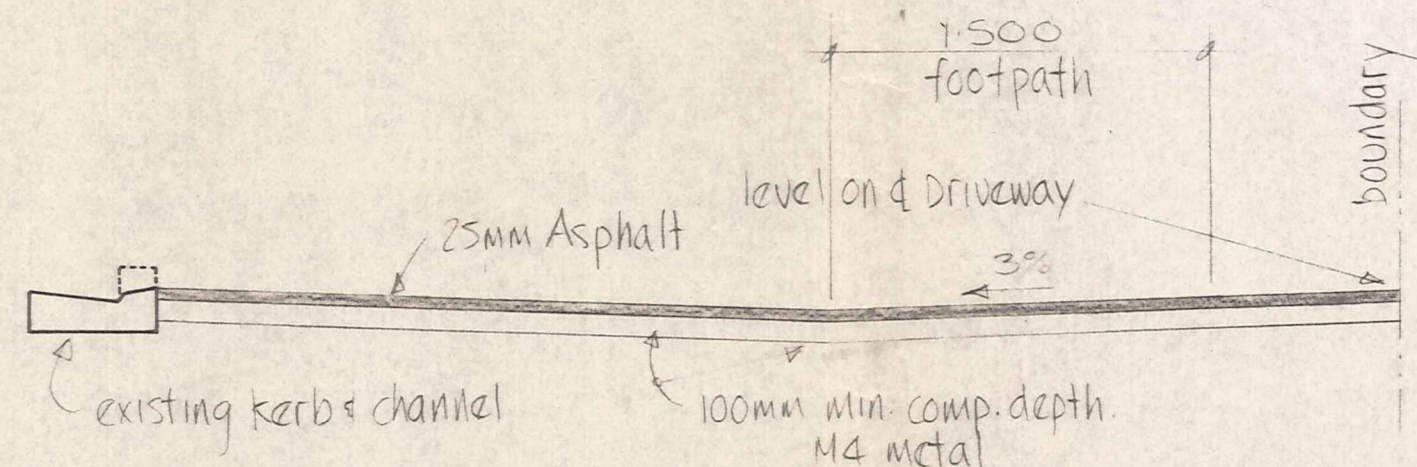 1.500
footpath
boundary
level on ¢ Driveway
25mm Asphalt
3%
existing kerb & channel
100mm min. comp. depth.
M4 metal